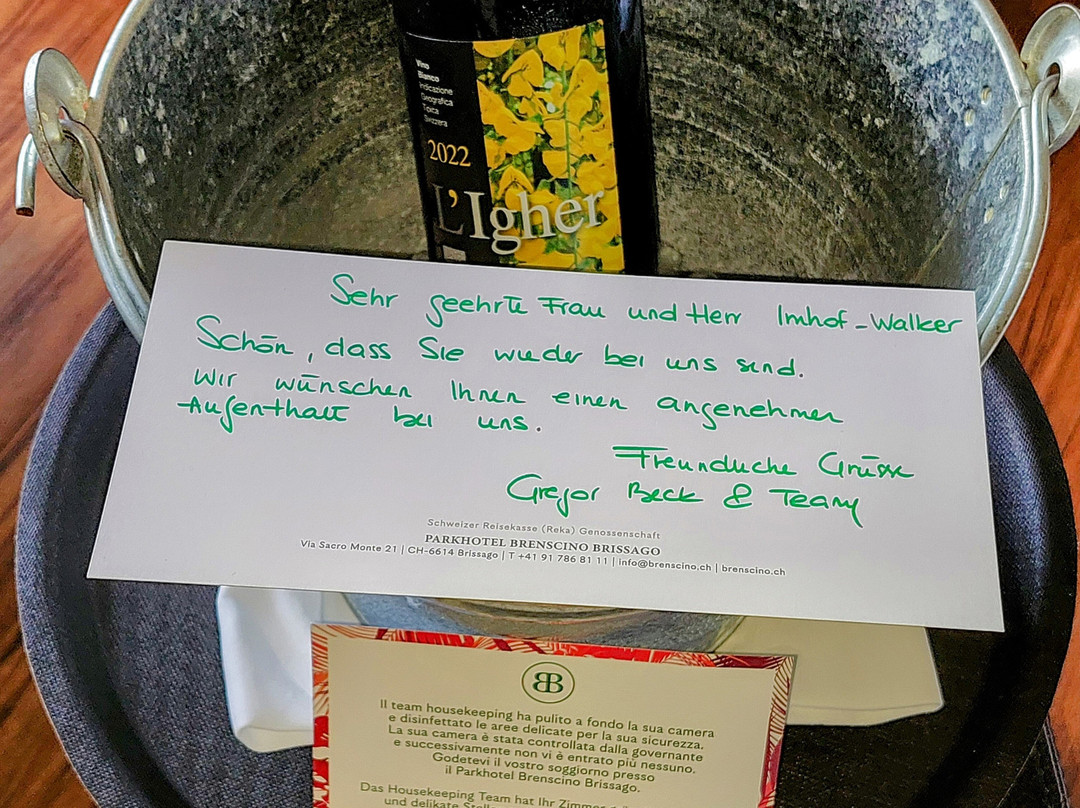 Vino
Bianco
Indicazione
Geografica
Tipica
Svizzera
2022
L'Igher
Sehr geehrte Frau und Herr Imhof-Walker
Schön, dass Sie wieder bei uns sind.
Wir wünschen Ihnen einen angenehmen
Aufenthalt bei uns.
Freundliche Grüsse
Gregor Beck & Team
Schweizer Reisekasse (Reka) Genossenschaft
PARKHOTEL BRENSCINO BRISSAGO
Via Sacro Monte 21 | CH-6614 Brissago | T +41 91 786 81 11 | info@brenscino.ch | brenscino.ch
BB
Il team housekeeping ha pulito a fondo la sua camera
e disinfettato le aree delicate per la sua sicurezza.
La sua camera è stata controllata dalla governante
e successivamente non vi è entrato più nessuno.
Godetevi il vostro soggiorno presso
il Parkhotel Brenscino Brissago.
Das Housekeeping Team hat Ihr Zimmer
und delikate